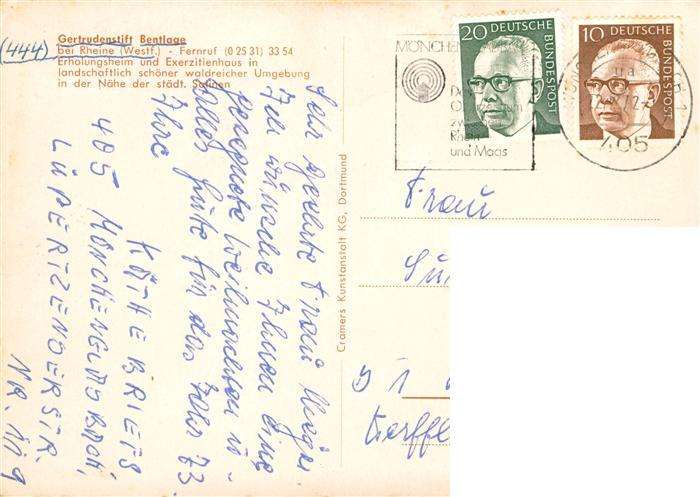 (444)
Gertrudenstift Bentlage
bei Rheine (Westf.) - Fernruf (0 25 31) 33 54
Erholungsheim und Exerzitienhaus in
landschaftlich schöner waldreicher Umgebung
in der Nähe der städt. Salinen
Sehr geehrte Frau
Ich wünsche Ihnen eine
gesegnete Weihnachten u.
alles Gute für das Jahr 73
Ihre
KÄTHE BRIEFS
405 MÖNCHENGLADBACH,
LÜPERTZENDERSTR.
NR. 119
Cramers Kunstanstalt KG, Dortmund
20 DEUTSCHE BUNDESPOST
10 DEUTSCHE BUNDESPOST
MÖNCHEN
Rhein
und Maas
405
Frau
D 1